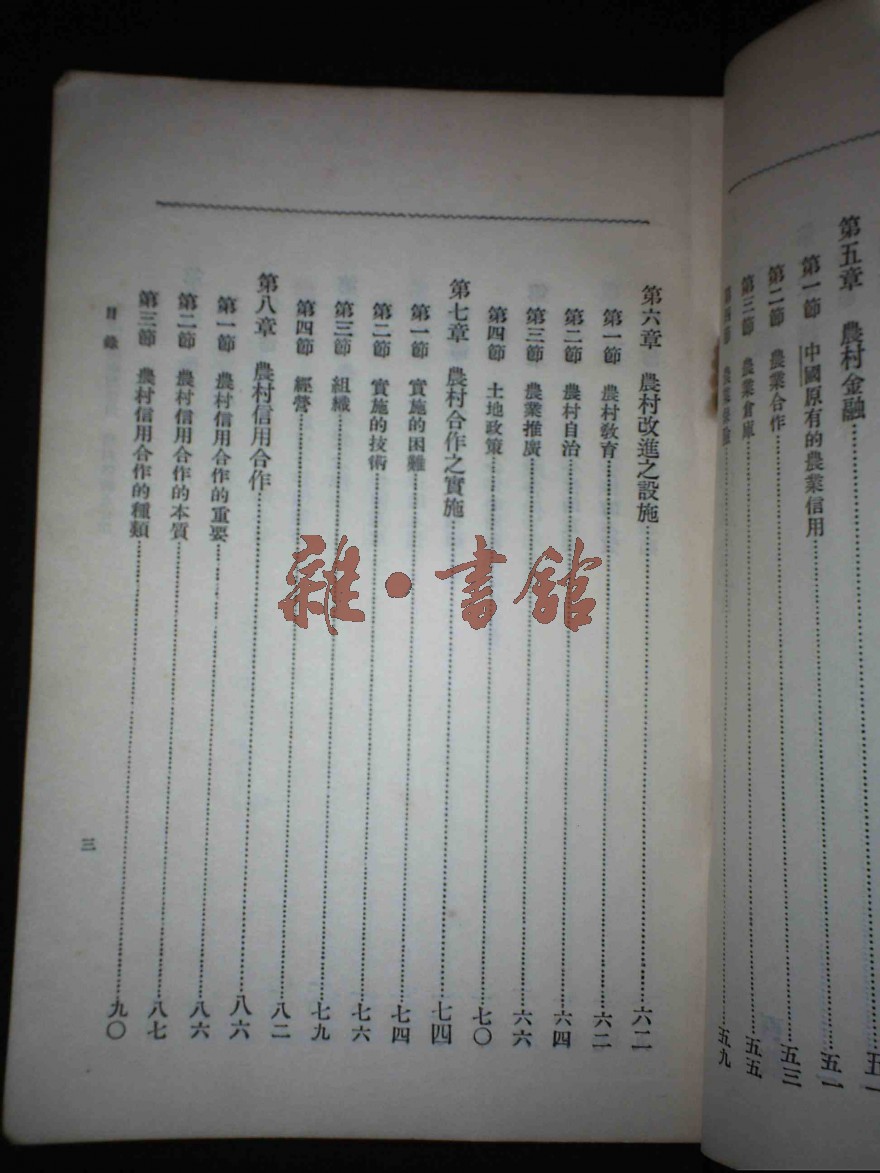 第五章 農村金融……五一
第一節 中國原有的農業信用……五一
第二節 農業合作……五三
第三節 農業倉庫……五五
第四節 農業保險……五九
第六章 農村改進之設施……六二
第一節 農村教育……六二
第二節 農村自治……六四
第三節 農業推廣……六六
第四節 土地政策……七〇
第七章 農村合作之實施……七四
第一節 實施的困難……七四
第二節 實施的技術……七六
第三節 組織……七九
第四節 經營……八二
第八章 農村信用合作……八六
第一節 農村信用合作的重要……八六
第二節 農村信用合作的本質……八七
第三節 農村信用合作的種類……九〇
目錄
三
雜·書館